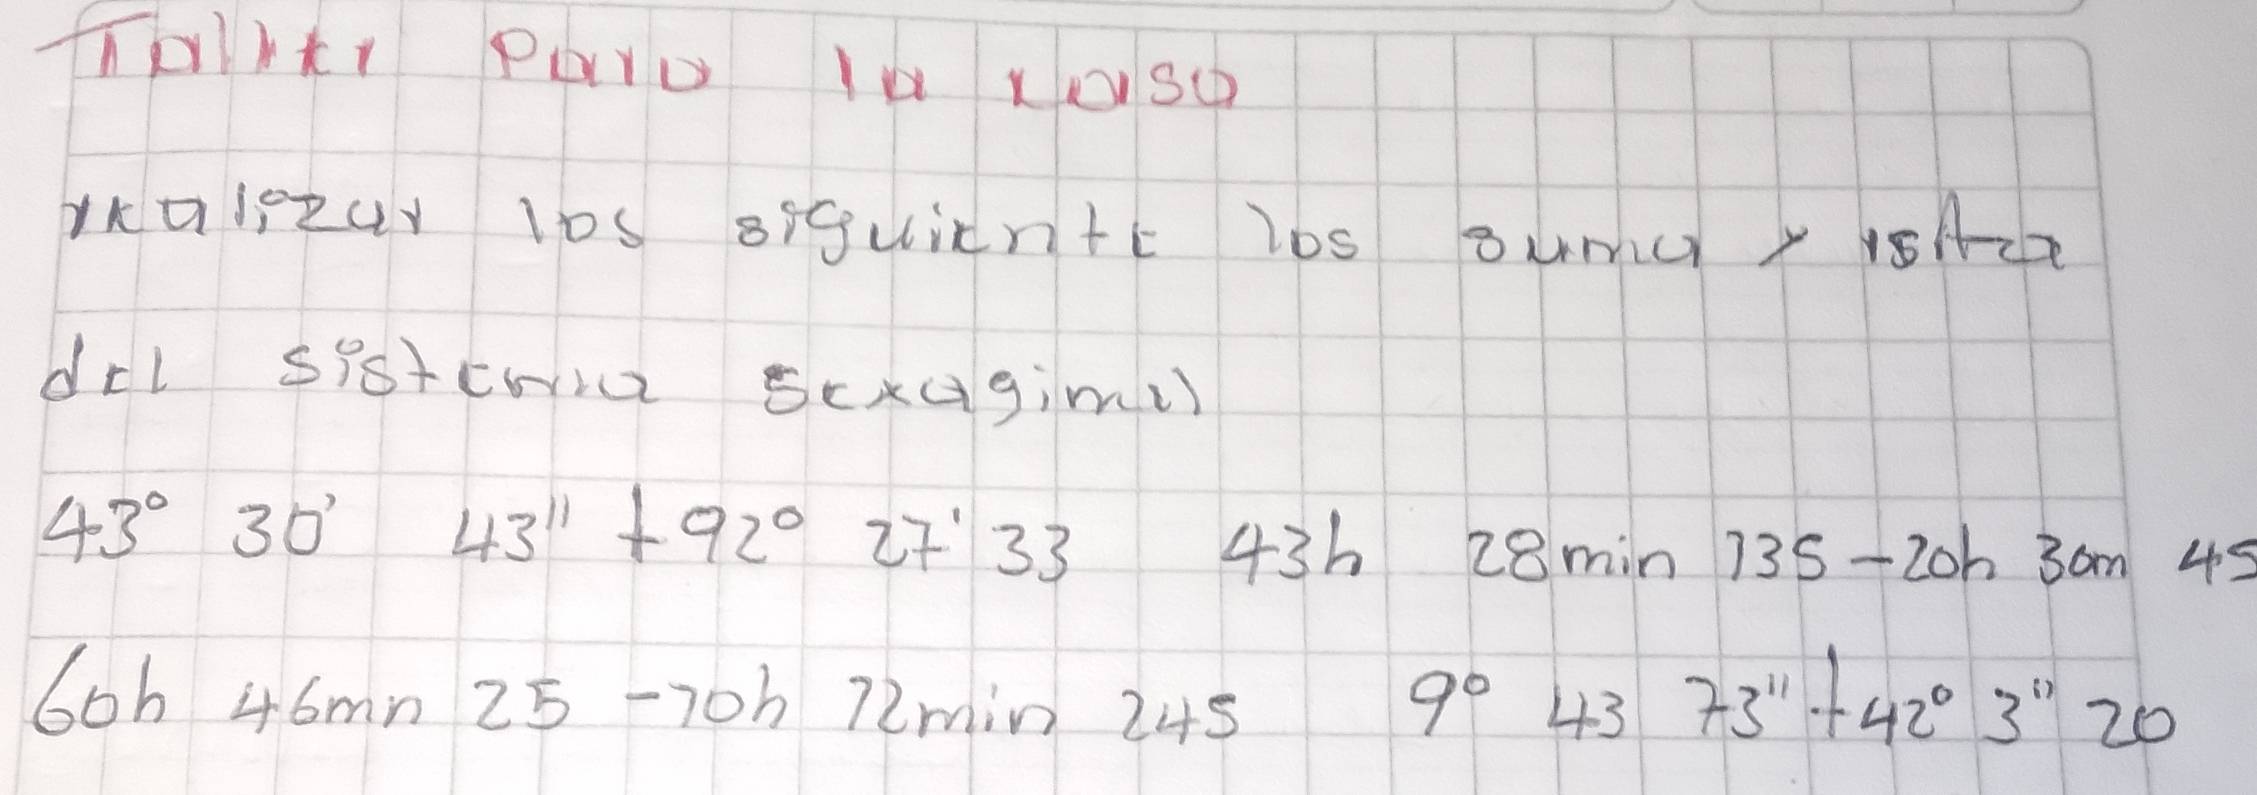 Taller Para la casa
realizar los siguiente los suma y resta
del sistema sexagimal
43° 30' 43" + 92° 27' 33 43h 28min 13s - 20h 30m 45
60h 46mn 25 - 10h 12min 24s 9° 43 73" + 42° 3" 20